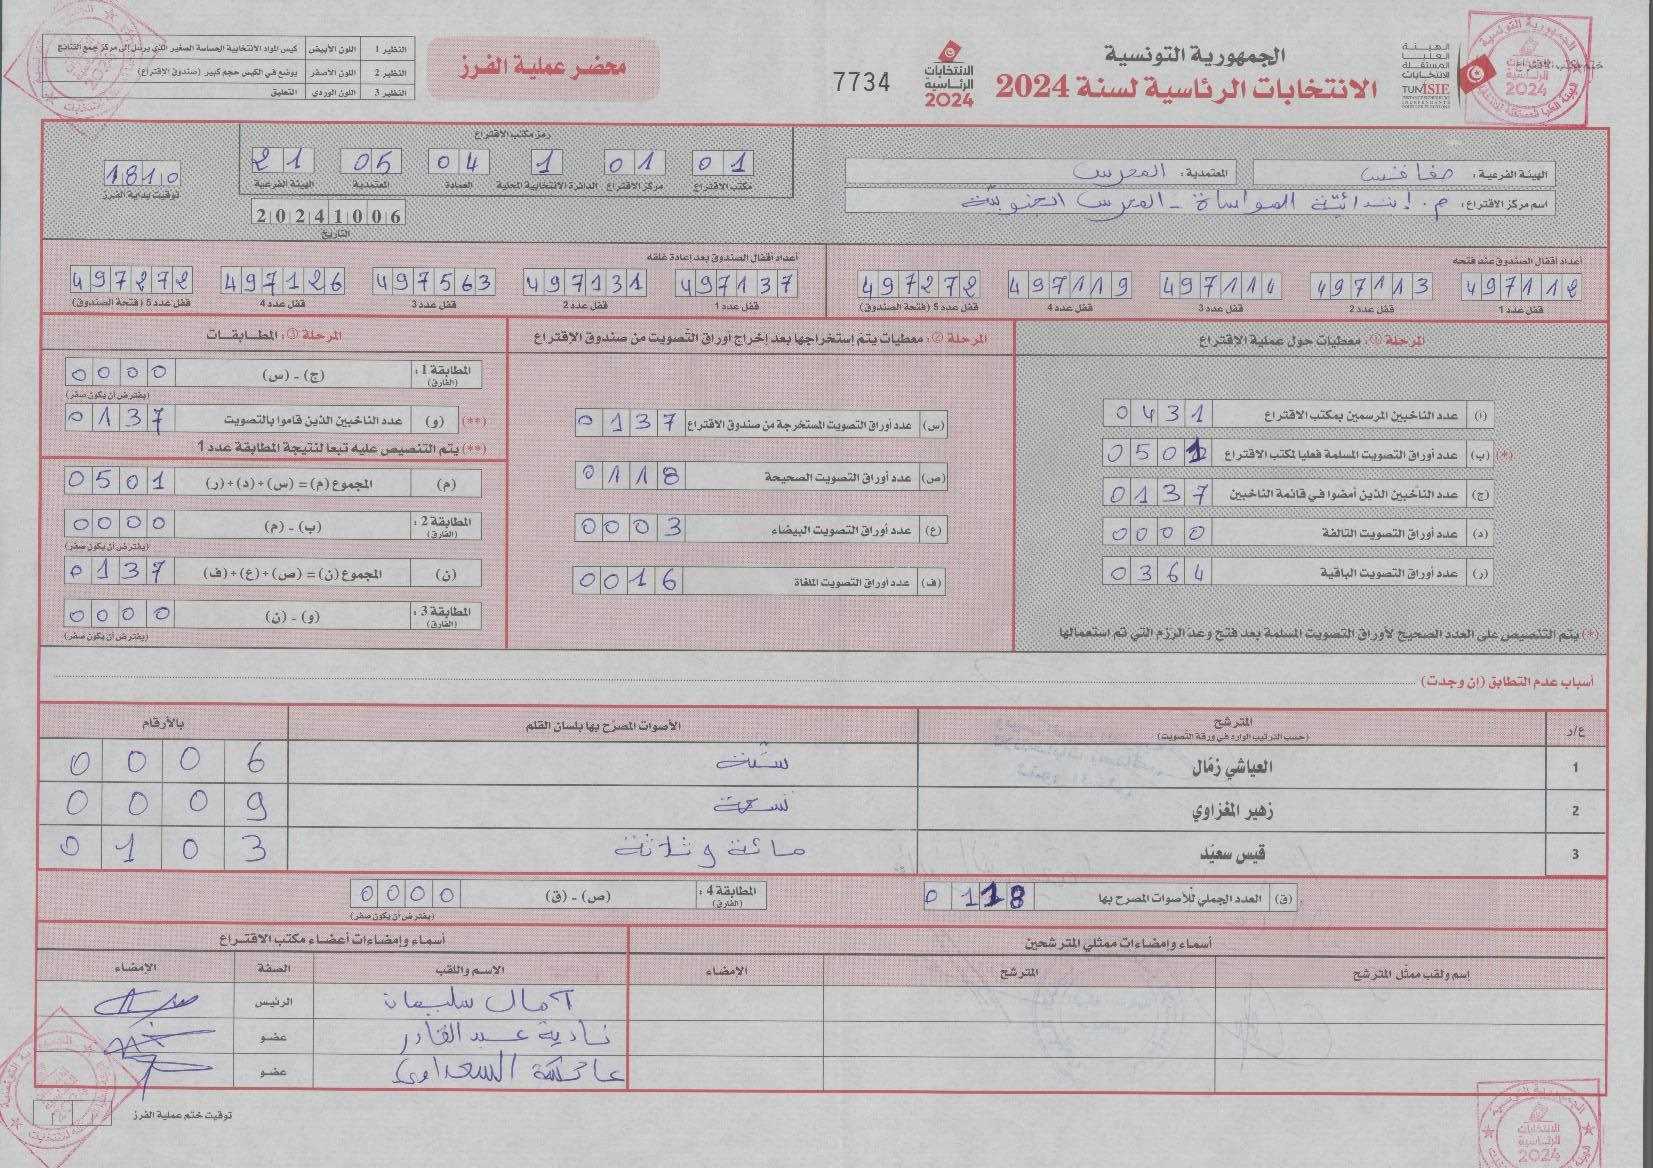 الجمهورية التونسية
الانتخابات الرئاسية لسنة 2024
الهيئة العليا المستقلة للانتخابات
TUNISIE
ختم مكتب الاقتراع
الانتخابات الرئاسية 2024
7734
محضر عملية الفرز
النظير 1 اللون الأبيض كيس المواد الانتخابية الحساسة الصغير الذي يرسل إلى مركز جمع النتائج
النظير 2 اللون الأصفر يوضع في الكيس حجم كبير (صندوق الاقتراع)
النظير 3 اللون الوردي التعليق
الهيئة الفرعية: صفاقس
المعتمدية: المحرس
اسم مركز الاقتراع: م. ابتدائية المواساة - المحرس الجنوبية
رمز مكتب الاقتراع
01 مكتب الاقتراع
01 مركز الاقتراع
1 الدائرة الانتخابية المحلية
04 العمادة
05 المعتمدية
21 الهيئة الفرعية
20241006
التاريخ
1810
توقيت بداية الفرز
أعداد أقفال الصندوق عند فتحه
497112 قفل عدد 1
497113 قفل عدد 2
497114 قفل عدد 3
497119 قفل عدد 4
497272 قفل عدد 5 (فتحة الصندوق)
أعداد أقفال الصندوق بعد إعادة غلقه
497137 قفل عدد 1
497131 قفل عدد 2
497563 قفل عدد 3
497126 قفل عدد 4
497272 قفل عدد 5 (فتحة الصندوق)
المرحلة ①: معطيات حول عملية الاقتراع
(ا) عدد الناخبين المرسمين بمكتب الاقتراع 0431
(*) (ب) عدد أوراق التصويت المسلمة فعليا لمكتب الاقتراع 0501
(ج) عدد الناخبين الذين أمضوا في قائمة الناخبين 0137
(د) عدد أوراق التصويت التالفة 0000
(ر) عدد أوراق التصويت الباقية 0364
(*) يتم التنصيص على العدد الصحيح لأوراق التصويت المسلمة بعد فتح وعد الرزم التي تم استعمالها
المرحلة ②: معطيات يتم استخراجها بعد إخراج أوراق التصويت من صندوق الاقتراع
(س) عدد أوراق التصويت المستخرجة من صندوق الاقتراع 0137
(ص) عدد أوراق التصويت الصحيحة 0118
(ع) عدد أوراق التصويت البيضاء 0003
(ف) عدد أوراق التصويت الملغاة 0016
المرحلة ③: المطابقات
المطابقة 1: (الفارق) (ج) - (س) 0000
(يفترض أن يكون صفر)
(**) (و) عدد الناخبين الذين قاموا بالتصويت 0137
(**) يتم التنصيص عليه تبعا لنتيجة المطابقة عدد 1
(م) المجموع (م) = (س) + (د) + (ر) 0501
المطابقة 2: (الفارق) (ب) - (م) 0000
(يفترض أن يكون صفر)
(ن) المجموع (ن) = (ص) + (ع) + (ف) 0137
المطابقة 3: (الفارق) (و) - (ن) 0000
(يفترض أن يكون صفر)
أسباب عدم التطابق (إن وجدت)
ع/د المترشح (حسب الترتيب الوارد في ورقة التصويت) الأصوات المصرّح بها بلسان القلم بالأرقام
1 العياشي زمّال ستة 0006
2 زهير المغزاوي تسعة 0009
3 قيس سعيّد مائة وثلاثة 0103
(ق) العدد الجملي للأصوات المصرح بها 0118
المطابقة 4: (الفارق) (ص) - (ق) 0000
(يفترض أن يكون صفر)
أسماء وإمضاءات ممثلي المترشحين
إسم ولقب ممثّل المترشح المترشح الإمضاء
أسماء وإمضاءات أعضاء مكتب الاقتراع
الاسم واللقب الصفة الإمضاء
آمال سليمان الرئيس
نادية عبد القادر عضو
السعداوي عضو
توقيت ختم عملية الفرز